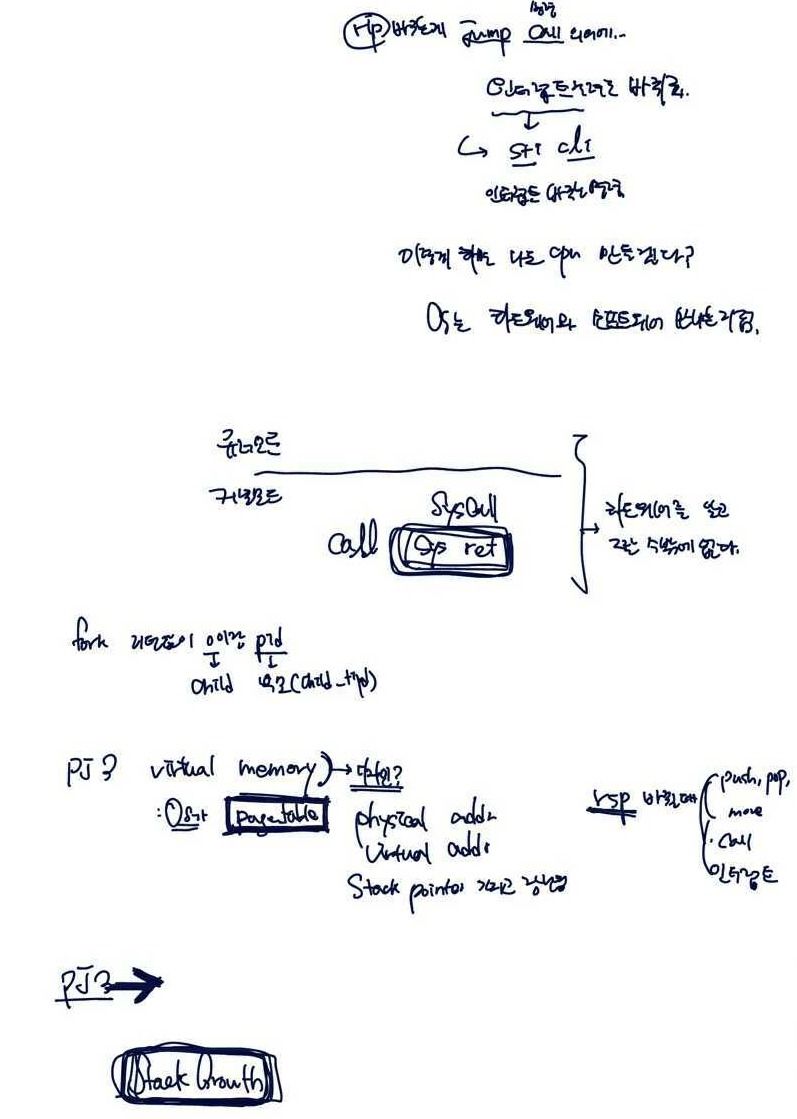 명령
rip 바뀌는게 Jump Call 외에..
인터럽트로도 바뀌고.
sti cli
인터럽트 바꾸는 명령
이렇게 하면 나도 cpu 만들겠다?
OS는 하드웨어와 소프트웨어
유저모드
커널모드
SysCall
Call Sys ret
하드웨어를 알고
그럴 수밖에 없다.
fork 리턴값이 0이랑 pid
child 부모(child_tid)
PJ 3 virtual memory
page table
physical addr
virtual addr
Stack pointer
rsp 바뀔때
push, pop,
move
call
인터럽트
PJ3
Stack Growth